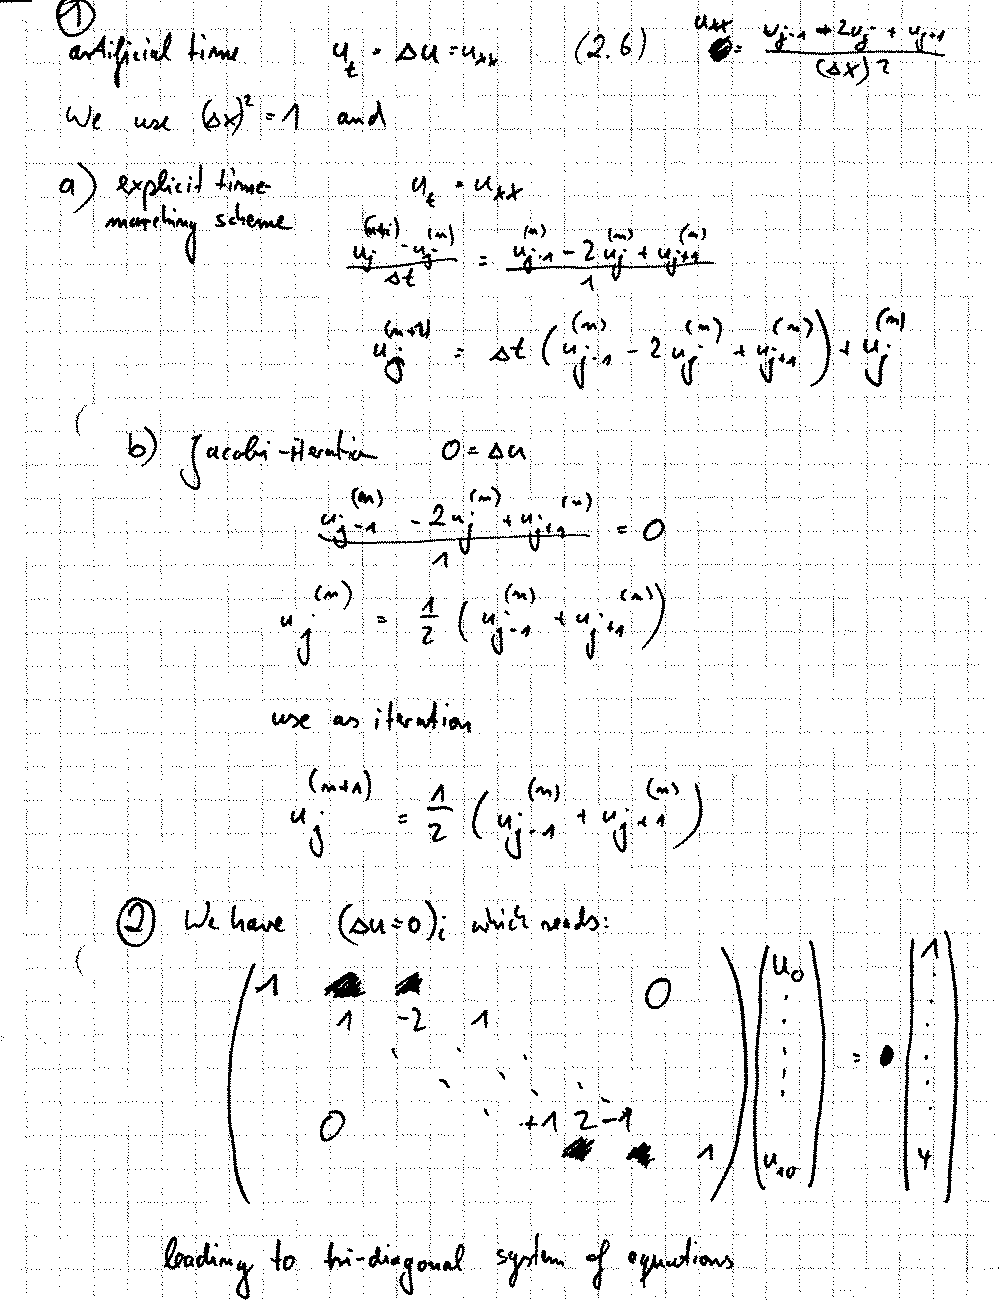 ①
artificial time u_t = Δu = u_xx (2.6) u_xx = (u_{j-1} + 2u_j + u_{j+1}) / (Δx)²
We use (Δx)² = 1 and
a) explicit time- u_t = u_xx
marching scheme
(u_j^{(n+1)} - u_j^{(n)}) / Δt = (u_{j-1}^{(n)} - 2 u_j^{(n)} + u_{j+1}^{(n)}) / 1
u_j^{(n+1)} = Δt ( u_{j-1}^{(n)} - 2 u_j^{(n)} + u_{j+1}^{(n)} ) + u_j^{(n)}
b) Jacobi-iteration 0 = Δu
(u_{j-1}^{(n)} - 2u_j^{(n)} + u_{j+1}^{(n)}) / 1 = 0
u_j^{(n)} = 1/2 ( u_{j-1}^{(n)} + u_{j+1}^{(n)} )
use as iteration
u_j^{(n+1)} = 1/2 ( u_{j-1}^{(n)} + u_{j+1}^{(n)} )
② We have (Δu=0)_i which reads:
1 0 u_0 1
1 -2 1
=
0 +1 2 -1
1 u_10 4
leading to tri-diagonal system of equations